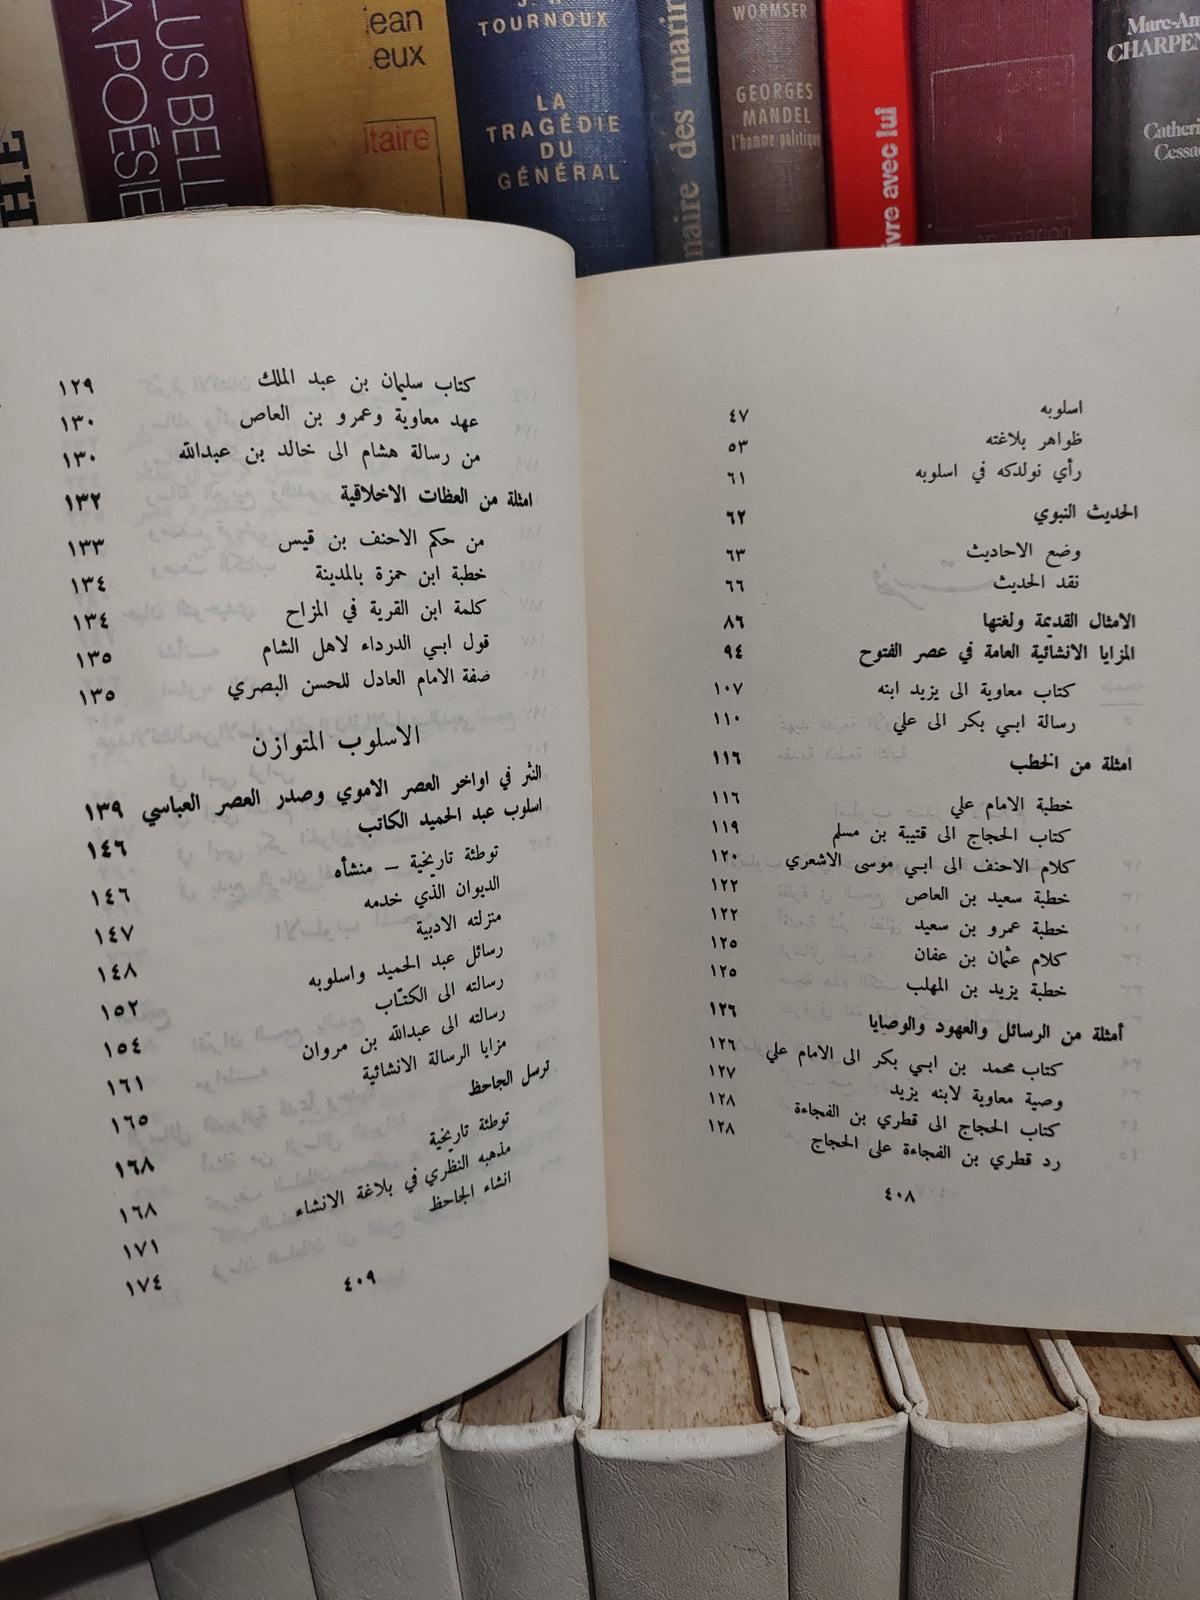 LUS BELL
A POÉSIE
jean
eux
ltaire
TOURNOUX
LA
TRAGÉDIE
DU
GÉNÉRAL
naire des marin
WORMSER
GEORGES
MANDEL
l'homme politique
ivre avec lui
Marc-An
CHARPEN
Catheri
Cessac
اسلوبه ٤٧
ظواهر بلاغته ٥٣
رأي نولدكه في اسلوبه ٦١
الحديث النبوي ٦٢
وضع الاحاديث ٦٣
نقد الحديث ٦٦
الامثال القديمة ولغتها ٨٦
المزايا الانشائية العامة في عصر الفتوح ٩٤
كتاب معاوية الى يزيد ابنه ١٠٧
رسالة ابي بكر الى علي ١١٠
امثلة من الخطب ١١٦
خطبة الامام علي ١١٦
كتاب الحجاج الى قتيبة بن مسلم ١١٩
كلام الاحنف الى ابي موسى الاشعري ١٢٠
خطبة سعيد بن العاص ١٢٢
خطبة عمرو بن سعيد ١٢٢
كلام عثمان بن عفان ١٢٥
خطبة يزيد بن المهلب ١٢٥
أمثلة من الرسائل والعهود والوصايا ١٢٦
كتاب محمد بن ابي بكر الى الامام علي ١٢٦
وصية معاوية لابنه يزيد ١٢٧
كتاب الحجاج الى قطري بن الفجاءة ١٢٨
رد قطري بن الفجاءة على الحجاج ١٢٨
٤٠٨
كتاب سليمان بن عبد الملك ١٢٩
عهد معاوية وعمرو بن العاص ١٣٠
من رسالة هشام الى خالد بن عبدالله ١٣٠
امثلة من العظات الاخلاقية ١٣٢
من حكم الاحنف بن قيس ١٣٣
خطبة ابن حمزة بالمدينة ١٣٤
كلمة ابن القرية في المزاح ١٣٤
قول ابي الدرداء لاهل الشام ١٣٥
صفة الامام العادل للحسن البصري ١٣٥
الاسلوب المتوازن
النثر في اواخر العصر الاموي وصدر العصر العباسي ١٣٩
اسلوب عبد الحميد الكاتب ١٤٦
توطئة تاريخية – منشأه ١٤٦
الديوان الذي خدمه ١٤٧
منزلته الادبية ١٤٨
رسائل عبد الحميد واسلوبه ١٥٢
رسالته الى الكتّاب ١٥٤
رسالته الى عبدالله بن مروان ١٦١
مزايا الرسالة الانشائية ١٦٥
ترسل الجاحظ ١٦٨
توطئة تاريخية ١٦٨
مذهبه النظري في بلاغة الانشاء ١٧١
انشاء الجاحظ ١٧٤
٤٠٩